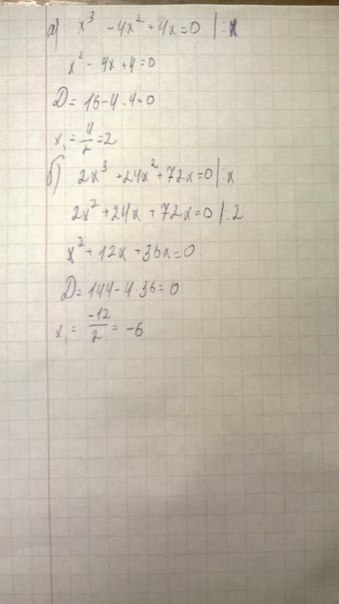 а) x³ - 4x² + 4x = 0 |: x
x² - 4x + 4 = 0
D = 16 - 4 · 4 = 0
x₁ = 4/2 = 2
б) 2x³ + 24x² + 72x = 0 |: x
2x² + 24x + 72x = 0 |: 2
x² + 12x - 36x = 0
D = 144 - 4 · 36 = 0
x₁ = -12/2 = -6